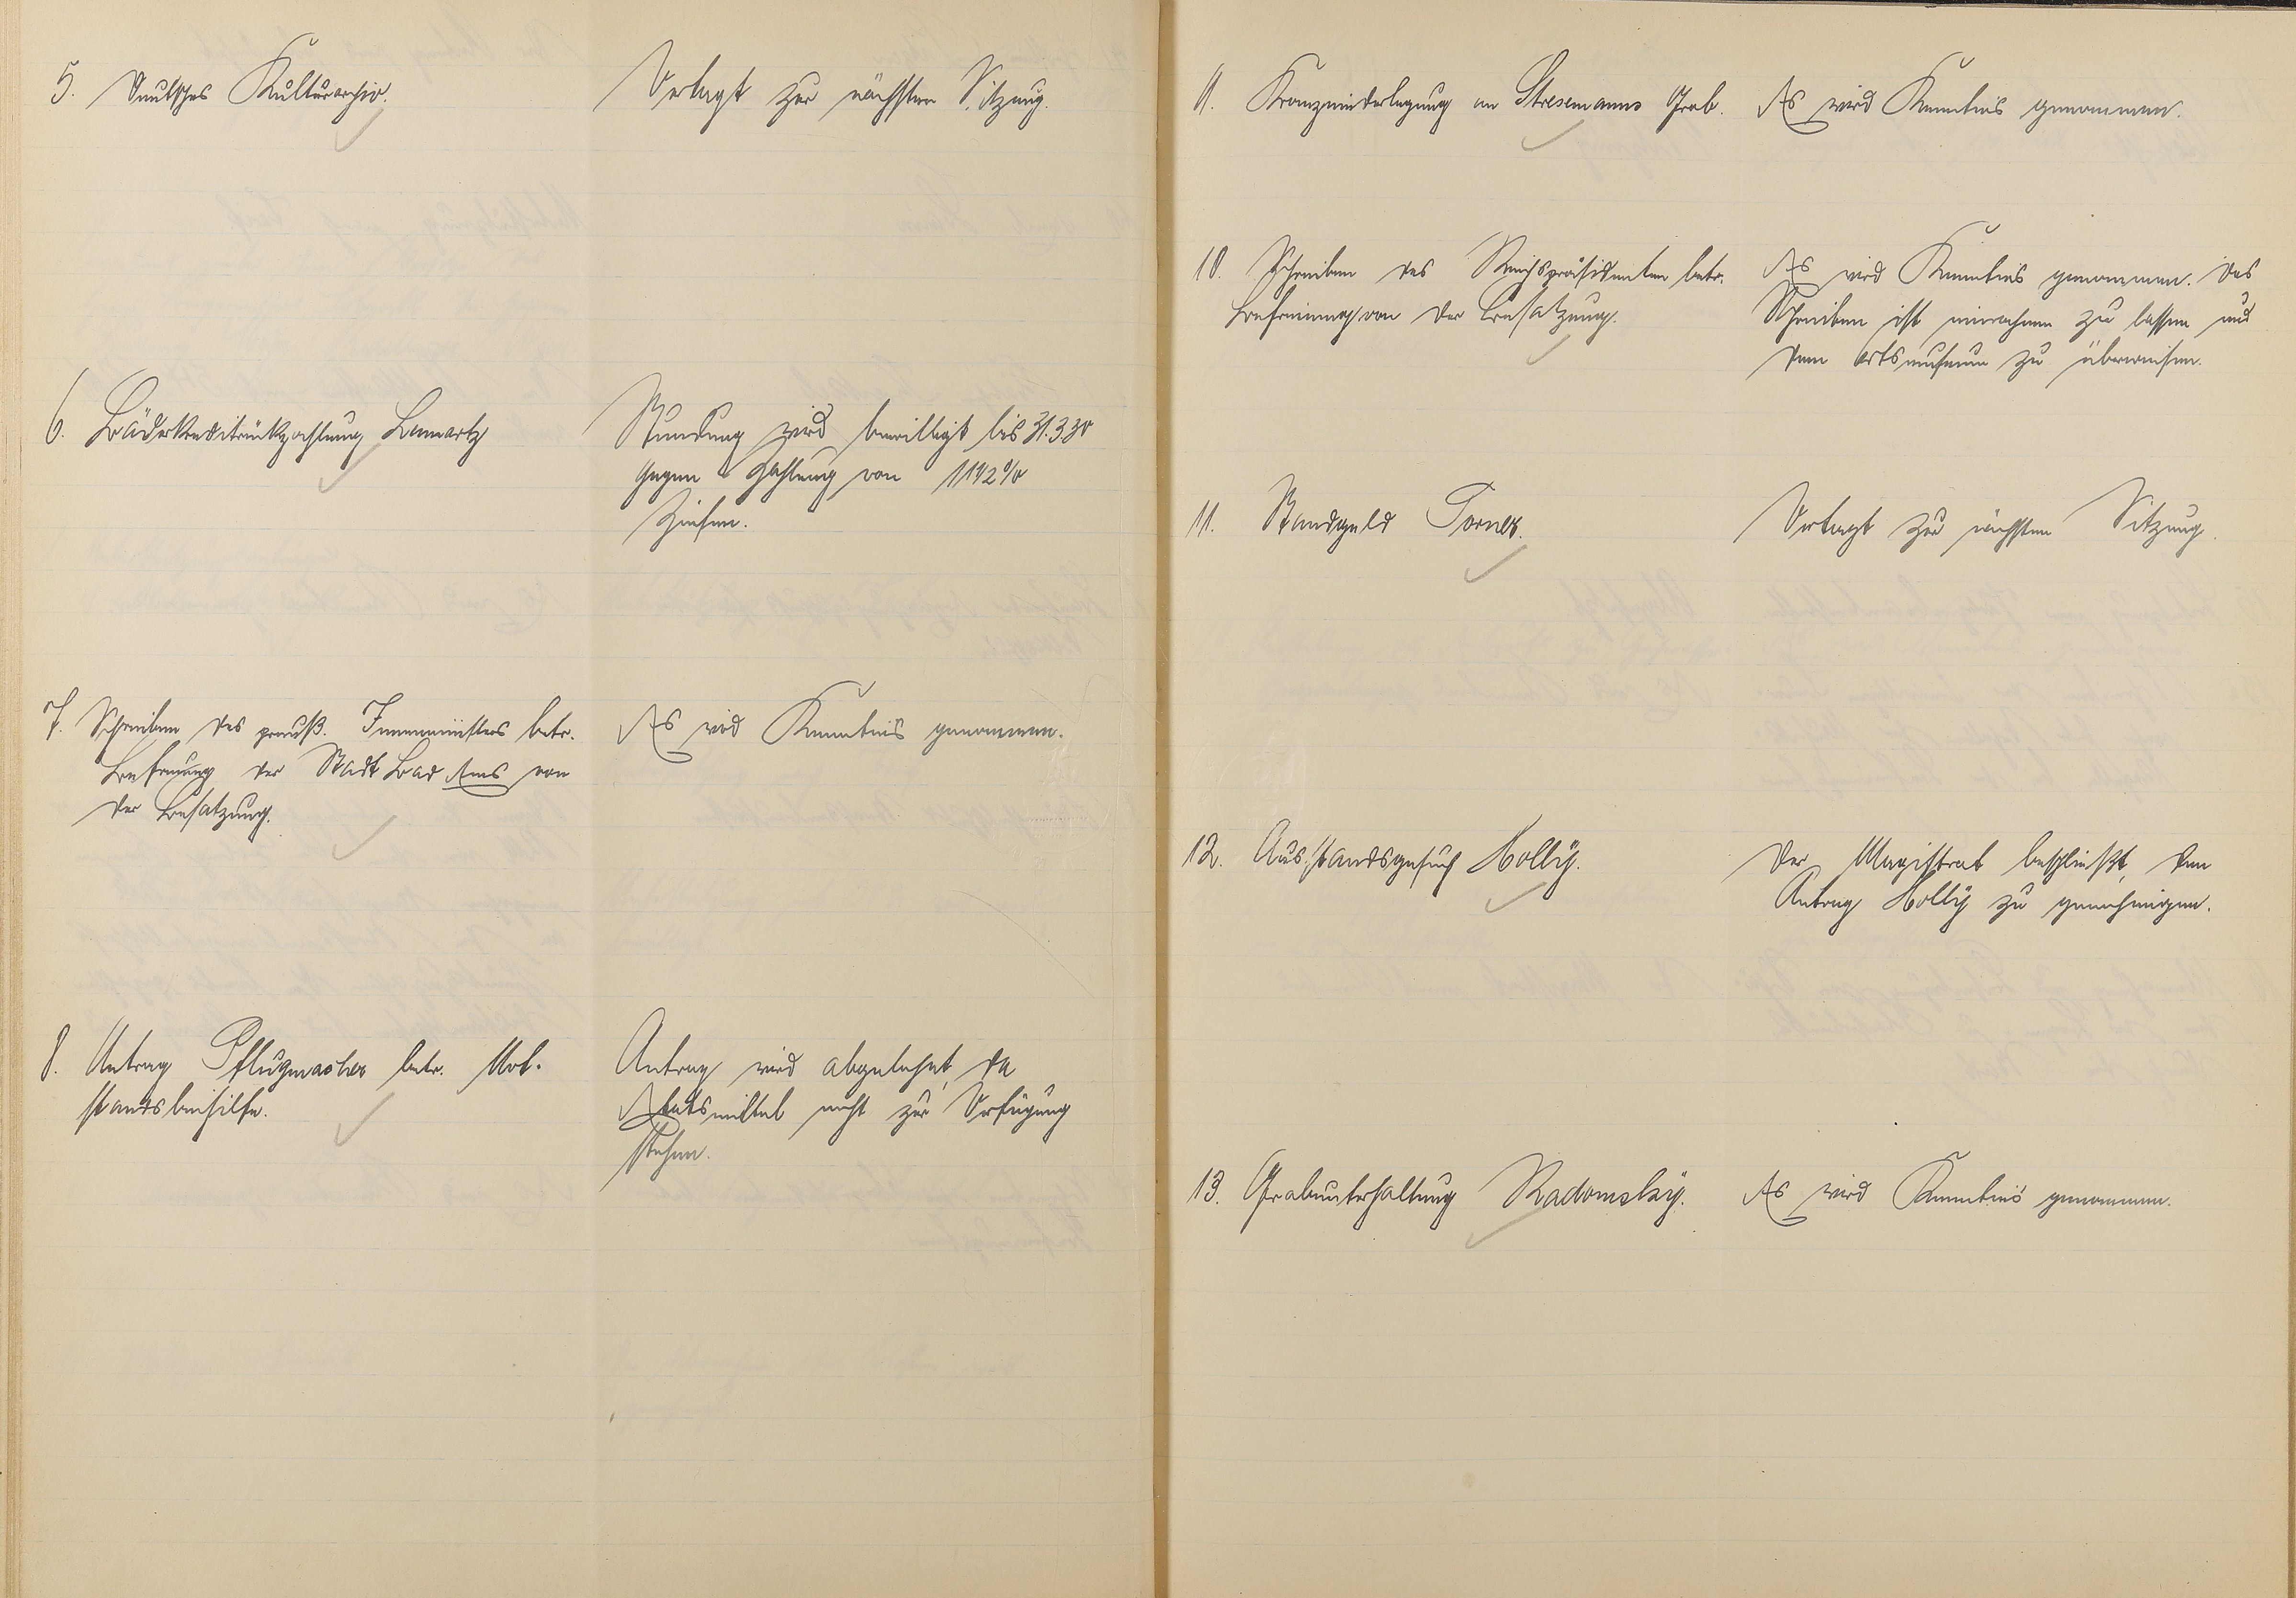 5. Deutsches Kulturarchiv.
Vertagt zur nächsten Sitzung.
6. Bäderkreditrückzahlung
Stundung wird bewilligt bis 31.3.30
gegen Zahlung von 11 1/2 %
Zinsen.
7. Schreiben des preuß. Innenministers betr.
Befreiung der Stadt Bad Ems von
der Besatzung.
Es wird Kenntnis genommen.
8. Antrag Pflugmacher betr. Not-
standsbeihilfe.
Antrag wird abgelehnt, da
Etatsmittel nicht zur Verfügung
stehen.
9. Kranzniederlegung an Stresemanns Grab.
Es wird Kenntnis genommen.
10. Schreiben des Reichspräsidenten betr.
Befreiung von der Besatzung.
Es wird Kenntnis genommen. Das
Schreiben ist einrahmen zu lassen und
dem Ortsmuseum zu überweisen.
11. Standgeld
Vertagt zur nächsten Sitzung.
12. Ausstandsgesuch Holly.
Der Magistrat beschließt, dem
Antrag Holly zu genehmigen.
13. Grabunterhaltung Radomsky.
Es wird Kenntnis genommen.